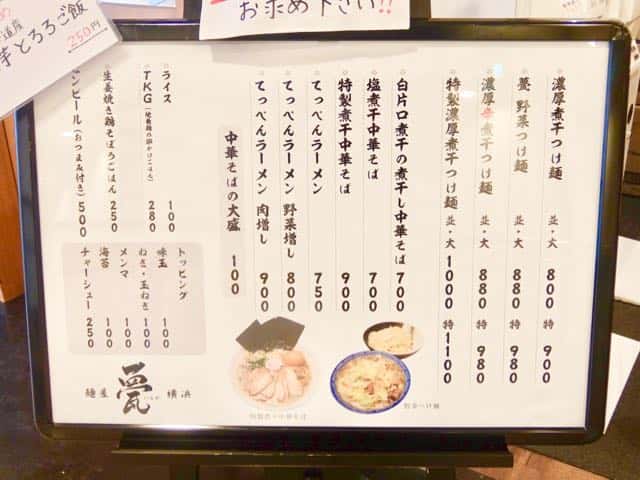 お求め下さい!!
芋とろろご飯
250円
濃厚煮干つけ麺 並・大 800 特 900
甍 野菜つけ麺 並・大 880 特 980
濃厚辛煮干つけ麺 並・大 880 特 980
特製濃厚煮干つけ麺 並・大 1000 特 1100
白片口煮干の煮干し中華そば 700
塩煮干中華そば 700
特製煮干中華そば 900
てっぺんラーメン 750
てっぺんラーメン 野菜増し 800
てっぺんラーメン 肉増し 900
中華そばの大盛 100
ライス 100
TKG 280
生姜焼き鶏そぼろごはん 250
ビール(おつまみ付き) 500
トッピング
味玉 100
ねぎ・玉ねぎ 100
メンマ 100
海苔 100
チャーシュー 250
麺屋 甍 横浜